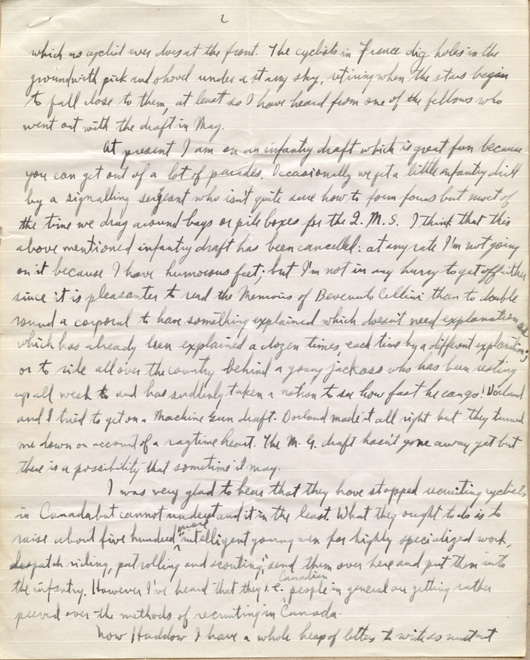 2
which no cyclist ever does at the front. The cyclists in France dig holes in the
ground with pick and shovel under a starry sky, retiring when the stars began
to fall close to them, at least so I have heard from one of the fellows who
went out with the draft in May.
At present I am on an infantry draft which is great fun because
you can get out of a lot of parades. Occasionally we get a little infantry drill
by a signalling sergeant who isn't quite sure how to form fours but most of
the time we drag around bags or pile boxes for the Q.M.S. I think that this
above mentioned infantry draft has been cancelled: at any rate I'm not going
on it because I have humorous feet; but I'm not in any hurry to get off it
since it is pleasanter to read the Memoirs of Benvenuto Cellini than to double
round a corporal to have something explained which doesn't need explanation and
which has already been explained a dozen times, each time by a different explanation;
or to ride all over the country behind a young jackass who has been resting
up all week to and has suddenly taken a notion to see how fast he can go! Dorland
and I tried to get on a Machine Gun draft. Dorland made it all right but they turned
me down on account of a ragtime heart. The M.G. draft hasn't gone away yet but
there is a possibility that sometime it may.
I was very glad to hear that they have stopped recruiting cyclists
in Canada but cannot understand it in the least. What they ought to do is to
raise about five hundred more "intelligent young men for highly specialized work,
despatch riding, patrolling and scouting," send them over here and put them into
the infantry. However I've heard that they i.e. Canadian people in general are getting rather
peeved over the methods of recruiting in Canada.
Now Haddow I have a whole heap of letters to write so must